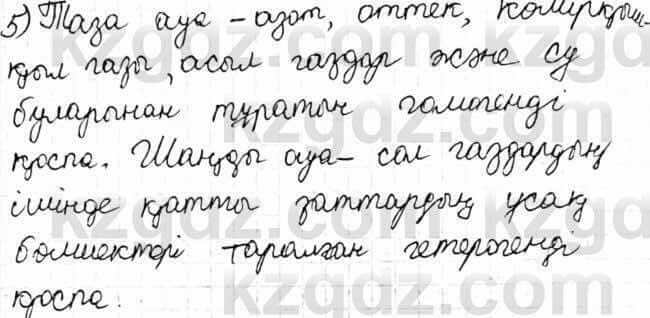 5) Таза ауа – азот, оттек, көмірқыш-
қыл газы, асыл газдар және су
буларынан тұратын гомогенді
қоспа. Шаңды ауа – сол газдардың
ішінде қатты заттардың ұсақ
бөлшектері таралған гетерогенді
қоспа.